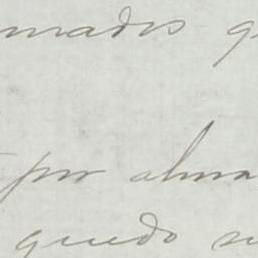 mados q
por alma
quedo